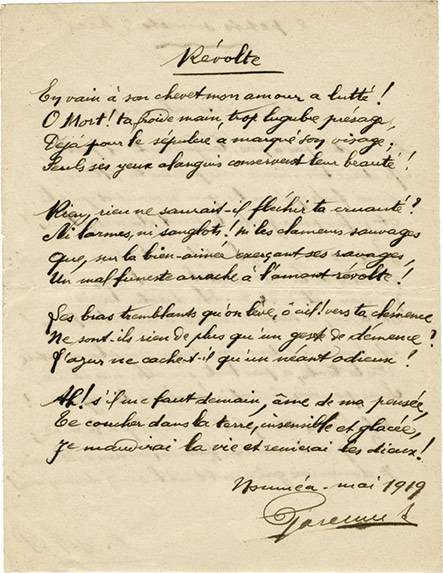 Révolte
En vain à son chevet mon amour a lutté !
O Mort ! ta froide main, trop lugubre présage,
Déjà pour le sépulcre a marqué son visage ;
Seuls ses yeux alanguis conservent leur beauté !
Rien, rien ne saurait-il fléchir ta cruauté ?
Ni larmes, ni sanglots ! ni les clameurs sauvages
Que, sur la bien-aimée exerçant ses ravages,
Un mal funeste arrache à l'amant révolté !
Les bras tremblants qu'on lève, ô ciel ! vers ta clémence
Ne sont-ils rien de plus qu'un geste de démence ?
L'azur ne cache-t-il qu'un néant odieux !
Ah ! s'il me faut demain, âme de ma pensée,
Te coucher dans la terre, insensible et glacée,
Je maudirai la vie et renierai les dieux !
Nouméa - mai 1919